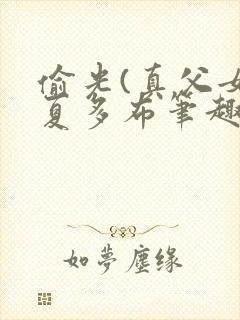 偷光(真父女
夏多布笔趣
如夢塵缘